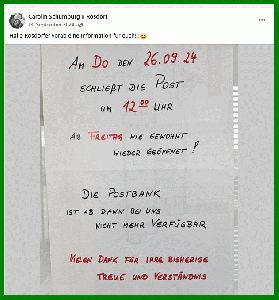 Carolin Schumburg ▸ Rosdorf
Hallo Rosdorfer vorab eine Information für euch!! 😊
AM DO DEN 26.09.24
SCHLIEßT DIE POST
UM 12⁰⁰ UHR
AB FREITAG WIE GEWOHNT
WIEDER GEÖFFNET !
DIE POSTBANK
IST AB DANN BEI UNS
NICHT MEHR VERFÜGBAR
VIELEN DANK FÜR IHRE BISHERIGE
TREUE UND VERSTÄNDNIS